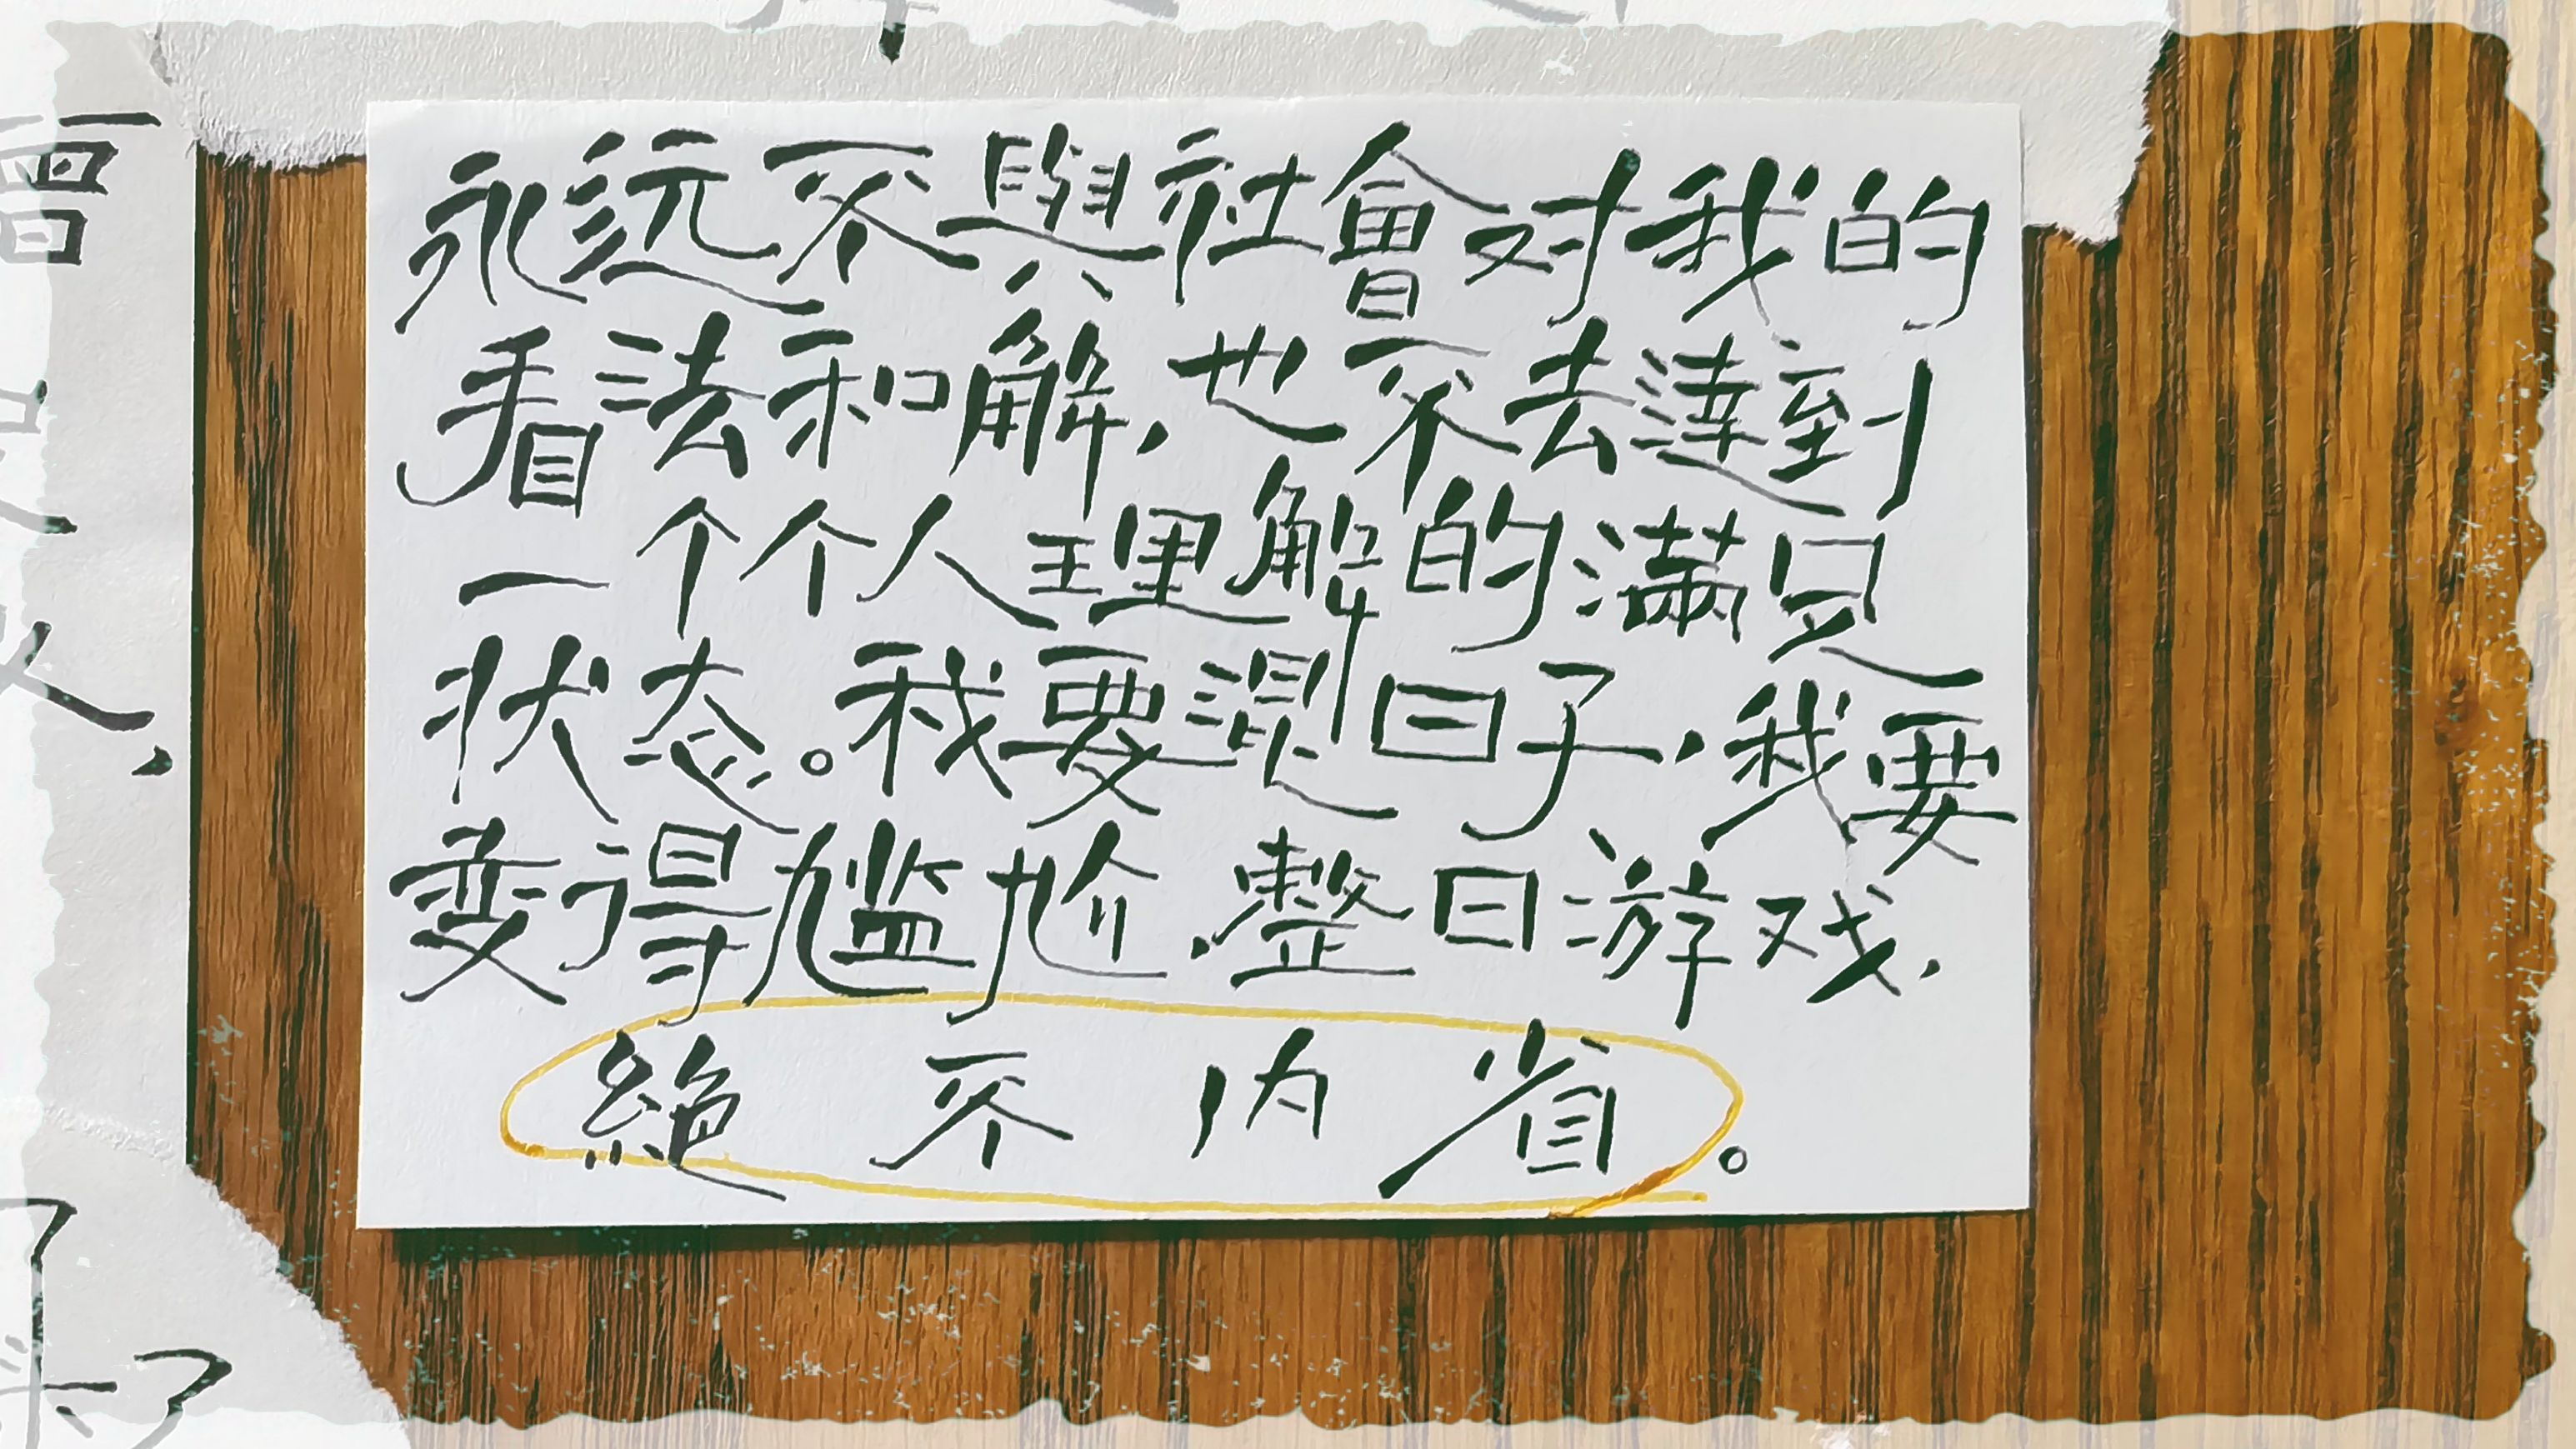 永远不與社會对我的
看法和解,也不去達到
一个个人理解的滿足
状态。我要混日子,我要
变得尴尬,整日游戏,
絕不内省。
會